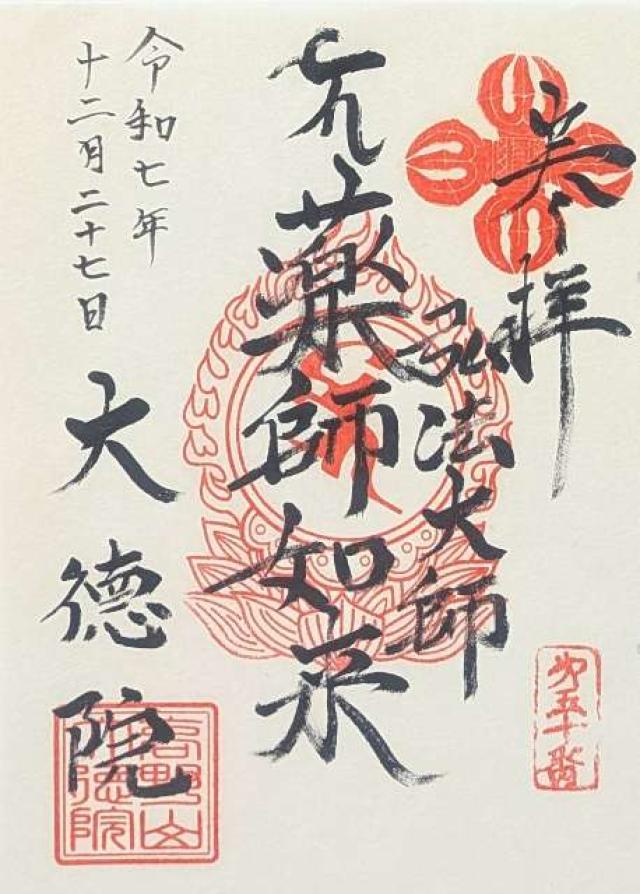 参拝
弘法大師
虎薬師如来
令和七年
十二月二十七日
大徳院
第五十番
高野山
大徳院